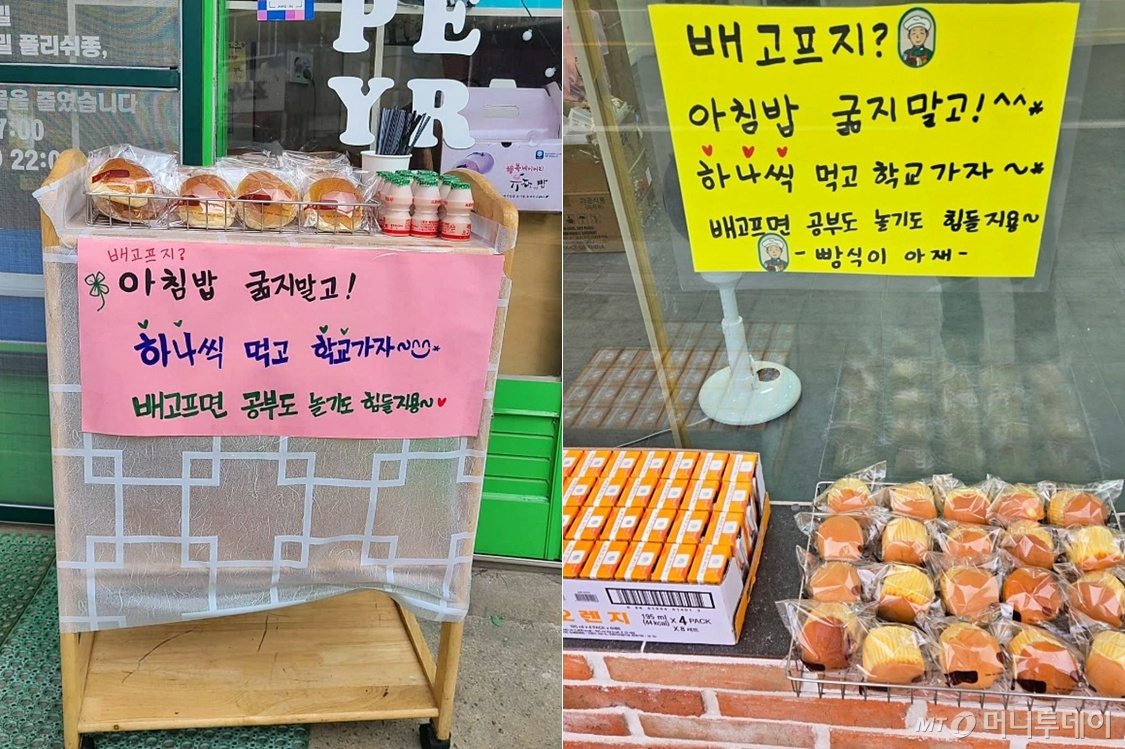 밀 폴리쉬종,
줄였습니다
7:00
22:00
PE
YR
배고프지?
아침밥 굶지말고!
하나씩 먹고 학교가자~^^*
배고프면 공부도 놀기도 힘들지용~♥
배고프지?
아침밥 굶지말고!^^*
하나씩 먹고 학교가자~*
배고프면 공부도 놀기도 힘들지용~
- 빵식이 아재 -
오렌지
195 ml
(44 kcal)
X 4 PACK
X 8 세트
MT 머니투데이